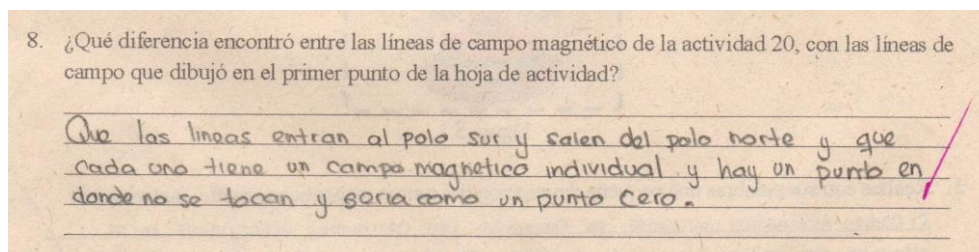 8. ¿Qué diferencia encontró entre las líneas de campo magnético de la actividad 20, con las líneas de
campo que dibujó en el primer punto de la hoja de actividad?
Que las lineas entran al polo sur y salen del polo norte y que
cada uno tiene un campo magnetico individual y hay un punto en
donde no se tocan y seria como un punto cero.